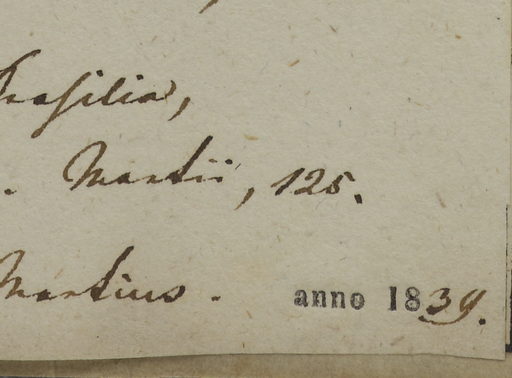 Brasilia,
. Martii, 125.
Martius. anno 1839.